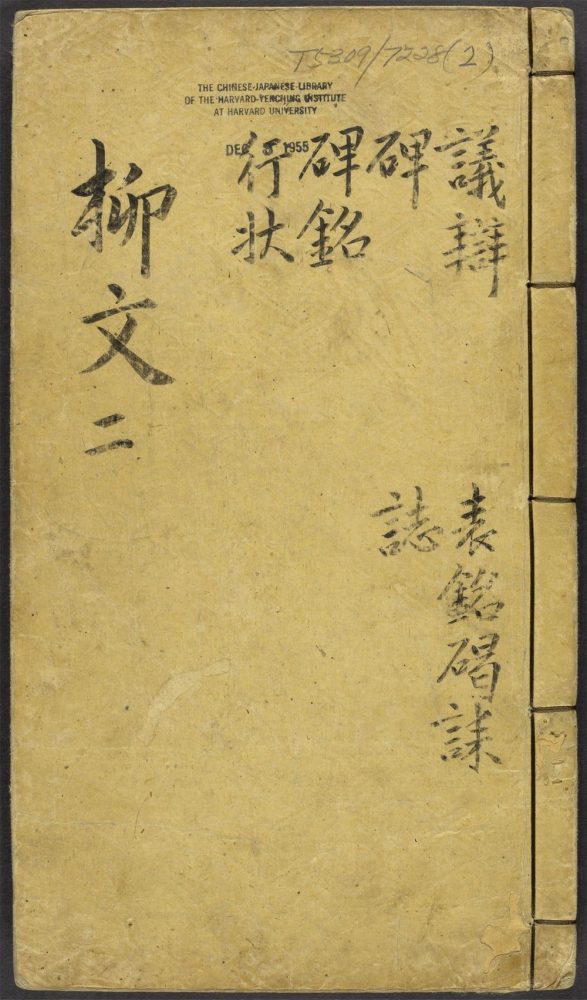 T5309/7228(2)
THE CHINESE-JAPANESE LIBRARY
OF THE HARVARD-YENCHING INSTITUTE
AT HARVARD UNIVERSITY
DEC 5 1955
議辯
碑
碑銘
行狀
表銘碣誄
誌
柳文二